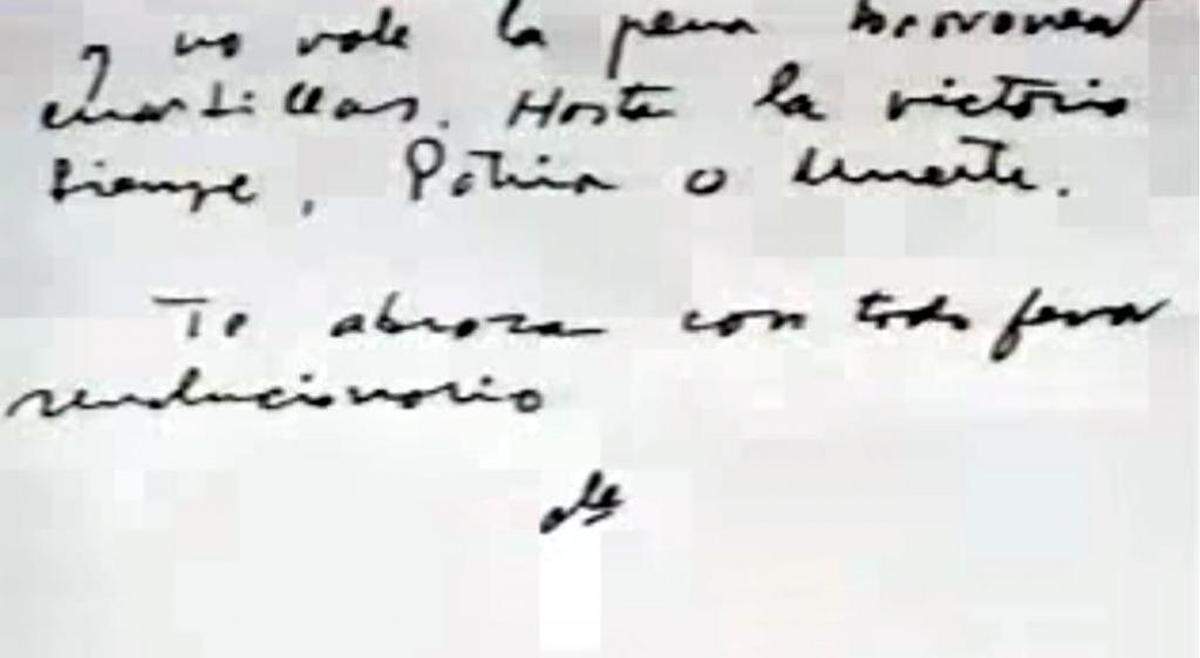 y no vale la pena borronear
cuartillas. Hasta la victoria
siempre, Patria o Muerte.
Te abraza con todo fervor
revolucionario
Che